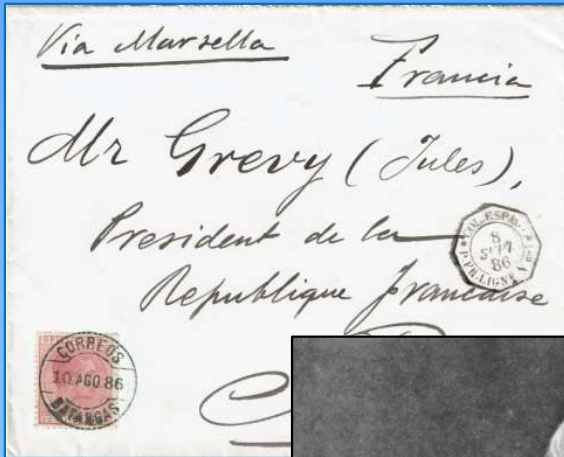 Via Marsella
Francia
Mr Grevy (Jules),
President de la
Republique francaise
8
86
CORREOS
10 AGO 86
BATANGAS